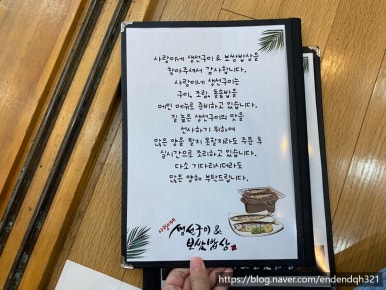 사랑이네 생선구이 & 보쌈밥상을
찾아주셔서 감사합니다.
사랑이네 생선구이는
구이, 조림, 돌솥밥을
메인 메뉴로 준비하고 있습니다.
질 높은 생선구이의 맛을
선사하기 위하여
많은 양을 팔지 못할지라도 주문 후
실시간으로 조리하고 있습니다.
다소 기다리시더라도
많은 양해 부탁드립니다.
사랑이네
생선구이 &
보쌈밥상
https://blog.naver.com/endendqh321